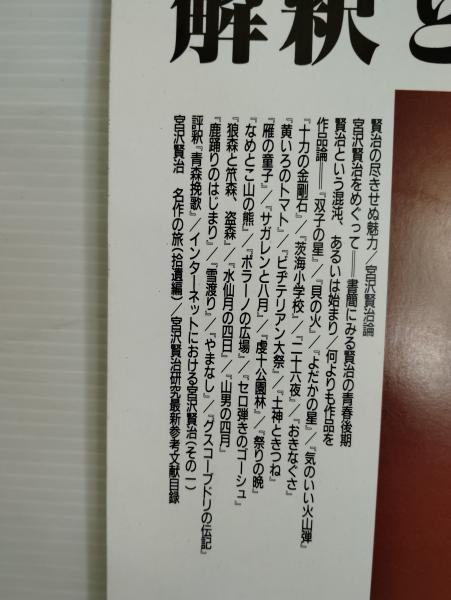 解釈と
賢治の尽きせぬ魅力/宮沢賢治論
宮沢賢治をめぐって――書簡にみる賢治の青春後期
賢治という混沌、あるいは始まり/何よりも作品を
作品論――『双子の星』/『貝の火』/『よだかの星』/『気のいい火山弾』
『十力の金剛石』/『茨海小学校』/『二十六夜』/『おきなぐさ』
『黄いろのトマト』/『ビヂテリアン大祭』/『土神ときつね』
『雁の童子』/『サガレンと八月』/『虔十公園林』/『祭りの晩』
『なめとこ山の熊』/『ポラーノの広場』/『セロ弾きのゴーシュ』
『狼森と笊森、盗森』/『水仙月の四日』/『山男の四月』
『鹿踊りのはじまり』/『雪渡り』/『やまなし』/『グスコーブドリの伝記』
評釈『青森挽歌』/インターネットにおける宮沢賢治(その一)
宮沢賢治 名作の旅(拾遺編)/宮沢賢治研究最新参考文献目録